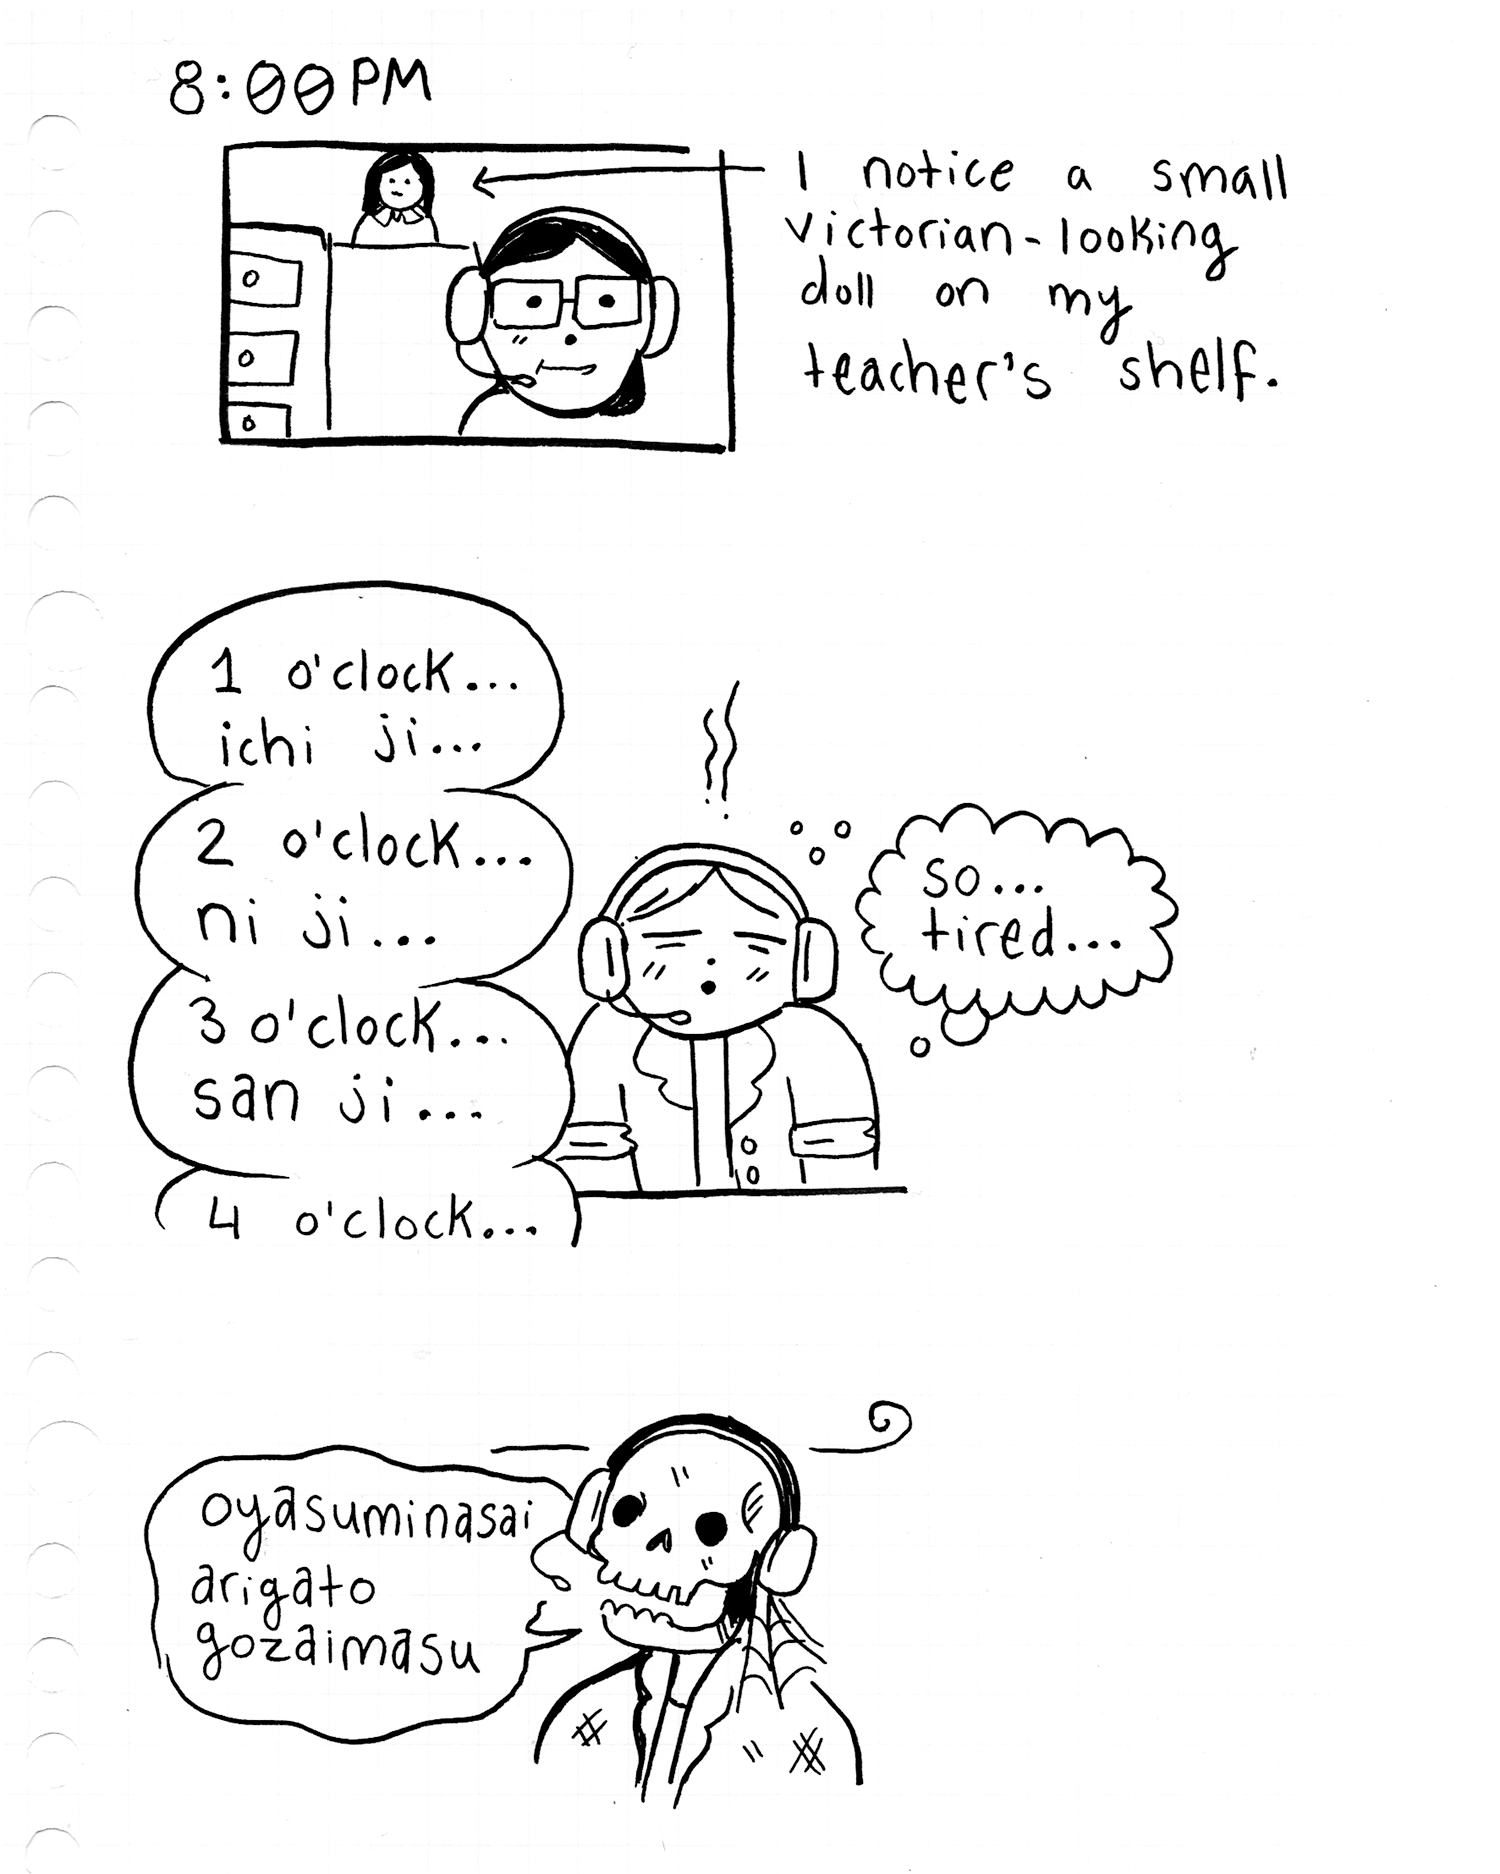 8:00 PM
I notice a small
victorian-looking
doll on my
teacher's shelf.
1 o'clock...
ichi ji...
2 o'clock...
ni ji...
3 o'clock...
san ji...
4 o'clock...
so...
tired...
oyasuminasai
arigato
gozaimasu